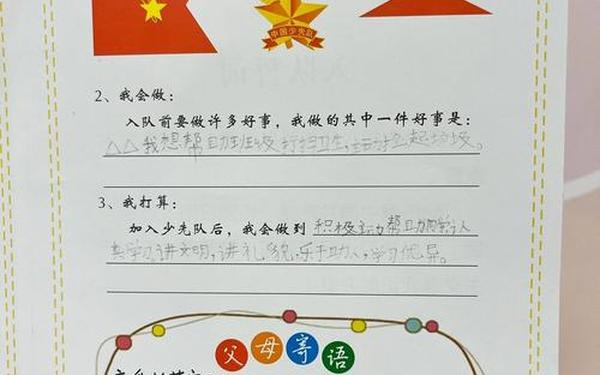 中国少先队
2、我会做：
入队前要做许多好事，我做的其中一件好事是：
△△我想帮助班级打扫卫生，主动捡起垃圾。
3、我打算：
加入少先队后，我会做到 积极主动帮助同学，认
真学习，讲文明，讲礼貌，乐于助人，学习优异。
父母寄语